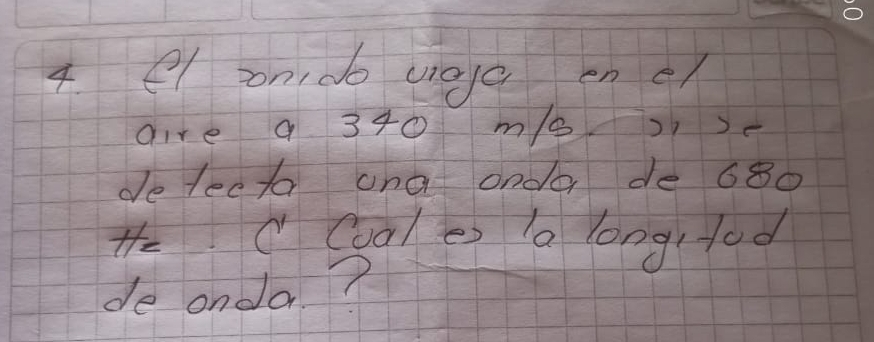 4. El sonido viaja en el
aire a 340 m/s. si se
detecta una onda de 680
Hz. ¿ Cual es la longitud
de onda.?